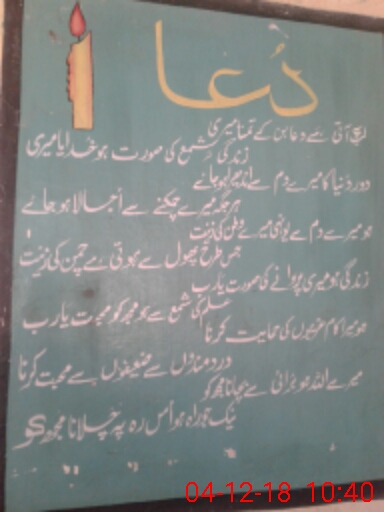 دُعا
لب پہ آتی ہے دعا بن کے تمنا میری
زندگی شمع کی صورت ہو خدایا میری
دور دنیا کا میرے دم سے اندھیرا ہو جائے
ہر جگہ میرے چمکنے سے اُجالا ہو جائے
ہو میرے دم سے یونہی میرے وطن کی زینت
جس طرح پھول سے ہوتی ہے چمن کی زینت
زندگی ہو میری پروانے کی صورت یارب
علم کی شمع سے ہو مجھ کو محبت یارب
ہو میرا کام غریبوں کی حمایت کرنا
درد مندوں سے ضعیفوں سے محبت کرنا
میرے اللہ ہر برائی سے بچانا مجھ کو
نیک جو راہ ہو اُس رہ پہ چلانا مجھ کو
04-12-18 10:40